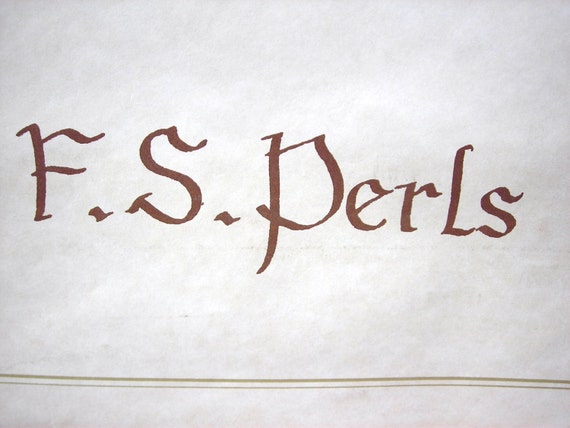 F. S. Perls